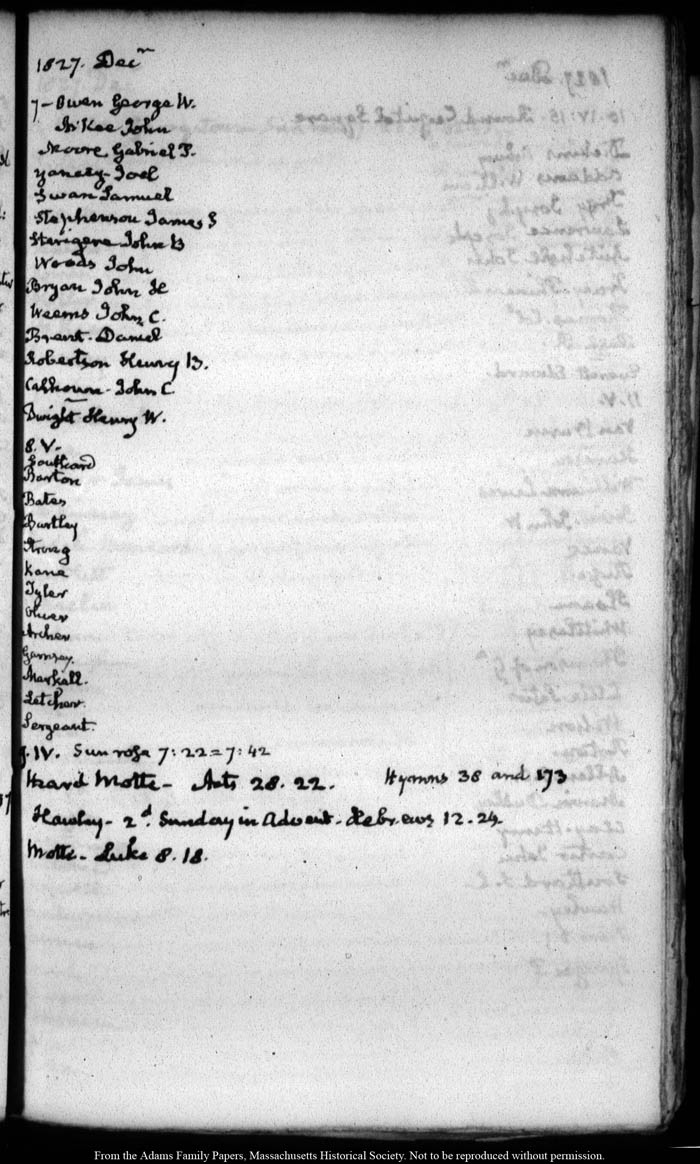 1827. Decr
7- Owen George W.
McKee John
Moore Gabriel P.
Yancey Joel
Swan Samuel
Stephenson James S
Sterigere John B
Woods John
Bryan John H
Weems John C.
Brent. Daniel
Robertson Henry B.
Calhoun. John C
Dwight Henry W.
8. V.
Southard
Barton
Bates
Bartley
Strong
Kane
Tyler
Oliver
Archer
Gurnsey.
Markell.
Letcher.
Sergeant.
9. IV. Sun rose 7:22=7:42
Heard Motte- Acts 28.22. Hymns 38 and 173
Hawley- 2d Sunday in Advent. Hebrews 12.24
Motte- Luke 8.18.
From the Adams Family Papers, Massachusetts Historical Society. Not to be reproduced without permission.